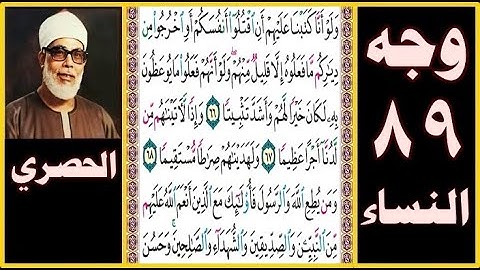 وجه
٨٩
النساء
وَلَوْ أَنَّا كَتَبْنَا عَلَيْهِمْ أَنِ ٱقْتُلُوٓا۟ أَنفُسَكُمْ أَوِ ٱخْرُجُوا۟ مِن
دِيَٰرِكُم مَّا فَعَلُوهُ إِلَّا قَلِيلٌ مِّنْهُمْ ۖ وَلَوْ أَنَّهُمْ فَعَلُوا۟ مَا يُوعَظُونَ
بِهِۦ لَكَانَ خَيْرًا لَّهُمْ وَأَشَدَّ تَثْبِيتًا ٦٦ وَإِذًا لَّـَٔاتَيْنَٰهُم مِّن
لَّدُنَّآ أَجْرًا عَظِيمًا ٦٧ وَلَهَدَيْنَٰهُمْ صِرَٰطًا مُّسْتَقِيمًا ٦٨
وَمَن يُطِعِ ٱللَّهَ وَٱلرَّسُولَ فَأُو۟لَٰٓئِكَ مَعَ ٱلَّذِينَ أَنْعَمَ ٱللَّهُ عَلَيْهِم
مِّنَ ٱلنَّبِيِّـۧنَ وَٱلصِّدِّيقِينَ وَٱلشُّهَدَآءِ وَٱلصَّٰلِحِينَ ۚ وَحَسُنَ
الحصري